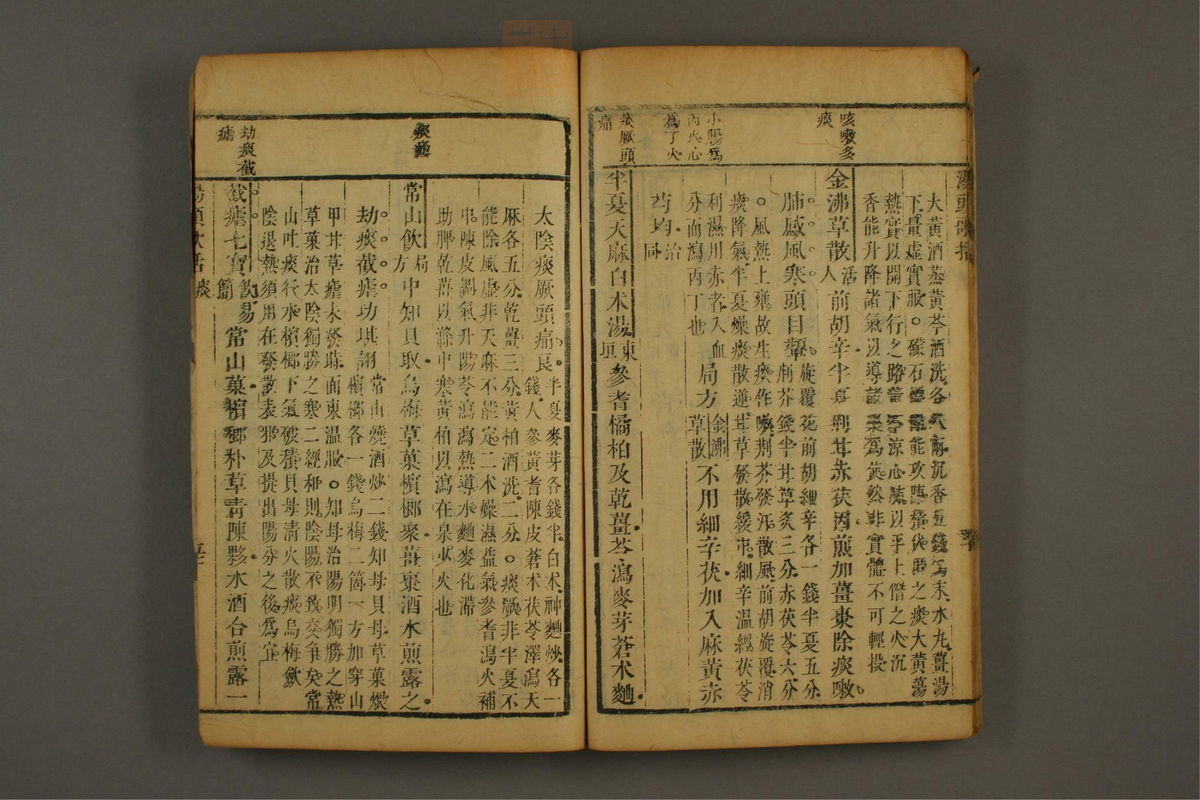 咳嗽多
痰
小腸為
丙火心
為丁火
痰厥頭
痛
湯頭歌括
大黃酒蒸黃芩酒洗各八兩沉香五錢為末水丸薑湯
下量虛實服。礞石能攻陳積伏匿之痰大黃蕩
熱實以開下行之路黃芩涼心肺以平上僭之火沉
香能升降諸氣以導諸藥為使然非實體不可輕投
金沸草散 活人 前胡辛半夏荊甘赤茯因煎加薑棗除痰嗽
肺感風寒頭目顰 旋覆花前胡細辛各一錢半夏五分
荊芥錢半甘草炙三分赤茯苓六分
。風熱上壅故生痰作嗽荊芥發汗散風前胡旋覆消
痰降氣半夏燥痰散逆甘草發散緩中細辛溫經茯苓
利濕用赤者入血
分而瀉丙丁也 局方 金沸草散 不用細辛茯加入麻黃赤
芍均 治同
半夏天麻白朮湯 東垣 參耆橘柏及乾薑苓瀉麥芽蒼朮麯
痰瘧
劫痰截
瘧
太陰痰厥頭痛良 半夏麥芽各錢半白朮神麯炒各一
錢人參黃耆陳皮蒼朮茯苓澤瀉天
麻各五分乾薑三分黃柏酒洗二分。痰厥非半夏不
能除風虛非天麻不能定二朮燥濕益氣參耆瀉火補
中陳皮調氣升陽苓瀉瀉熱導水麯麥化滯
助脾乾薑以滌中寒黃柏以瀉在泉少火也
常山飲 局方 中知貝取烏梅草菓檳榔聚薑棗酒水煎露之
劫痰截瘧功堪詡 常山燒酒炒二錢知母貝母草菓煨
檳榔各一錢烏梅二箇一方加穿山
甲甘草瘧未發時面東溫服。知母治陽明獨勝之熱
草菓治太陰獨勝之寒二經和則陰陽不致交爭矣常
山吐痰行水檳榔下氣破積貝母清火散痰烏梅斂
陰退熱須用在發散表邪及提出陽分之後為宜
截瘧七寶飲 易簡 常山菓檳榔朴草青陳夥水酒合煎露一
湯頭歌括 痰